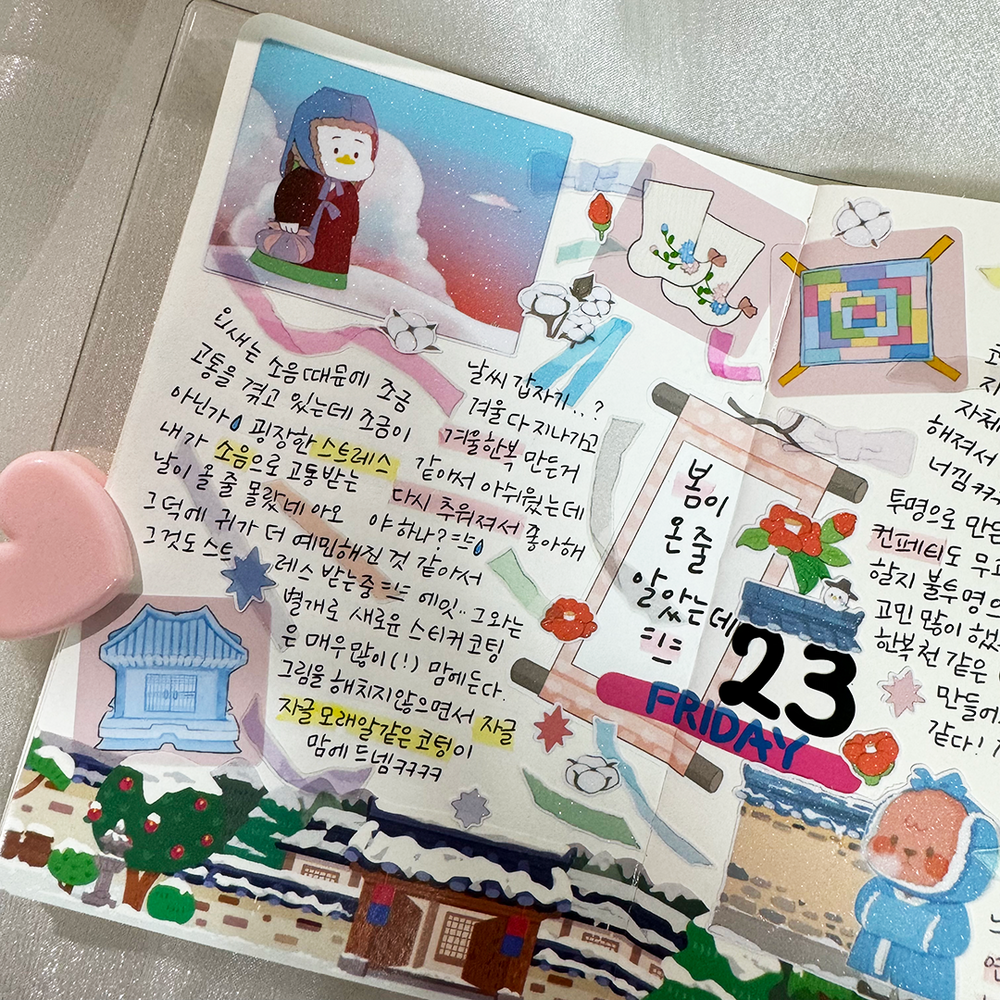 요새는 소음 때문에 조금
고통을 겪고 있는데 조금이
아닌가 굉장한 스트레스
내가 소음으로 고통받는
날이 올 줄 몰랐네 아오
그 덕에 귀가 더 예민해진 것 같아서
그것도 스트레스 받는중 ㅌㅌ 에잇.. 그와는
별개로 새로운 스티커 코팅
은 매우 많이(!) 맘에든다.
그림을 해치지않으면서 자글
자글 모래알같은 코팅이
맘에 드넴 ㅋㅋㅋㅋ
날씨 갑자기..?
겨울 다 지나가고
겨울한복 만든거
같아서 아쉬웠는데
다시 추워져서 좋아해
야 하나? ㅌㅌ
봄이
온 줄
알았는데
ㅌㅌ
23
FRIDAY
자체
해져서
너낌 ㅋㅋ
투명으로 만든
컨페티도 무
할지 불투명으
고민 많이 했
한복천 같은
만들어
같다!